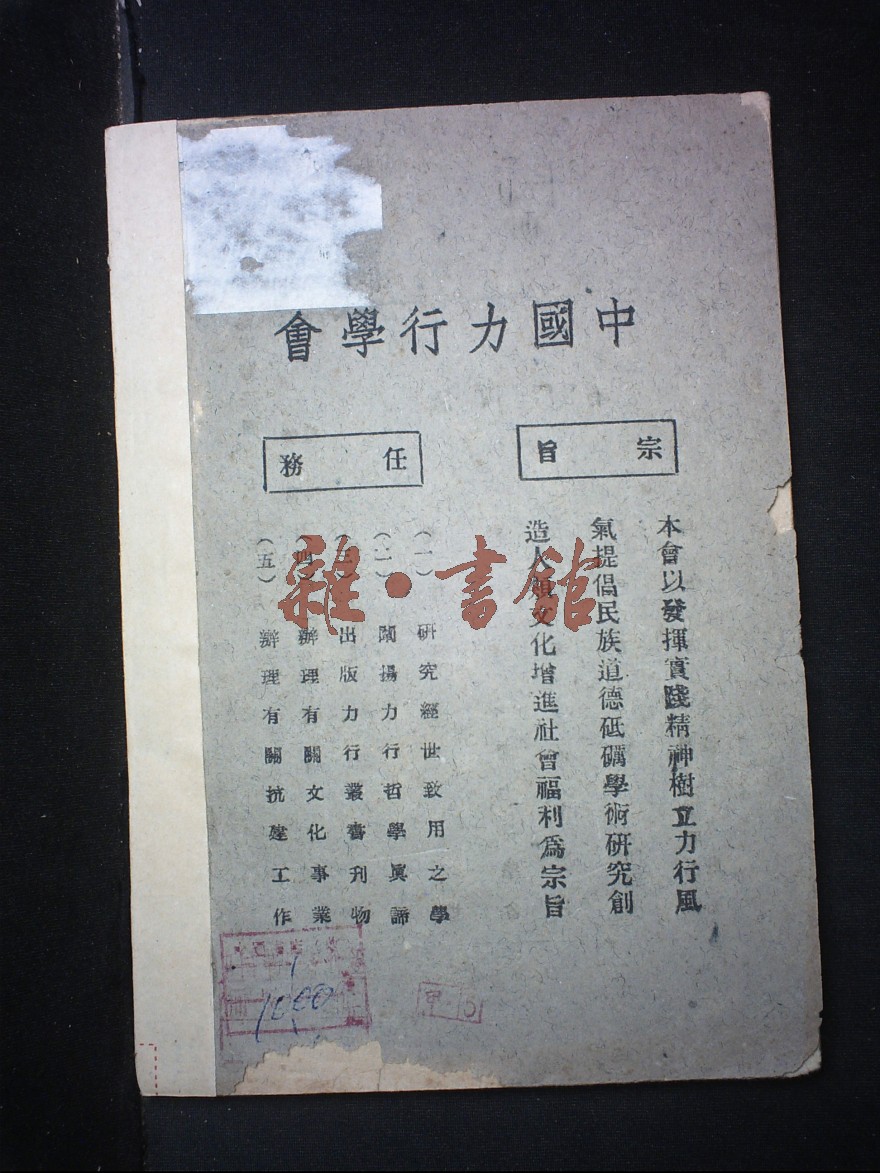 中國力行學會
宗旨
本會以發揮實踐精神樹立力行風
氣提倡民族道德砥礪學術研究創
造人類文化增進社會福利爲宗旨
任務
(一) 研究經世致用之學
(二) 闡揚力行哲學眞諦
(三) 出版力行叢書刊物
(四) 辦理有關文化事業
(五) 辦理有關抗建工作
雜·書館
1000